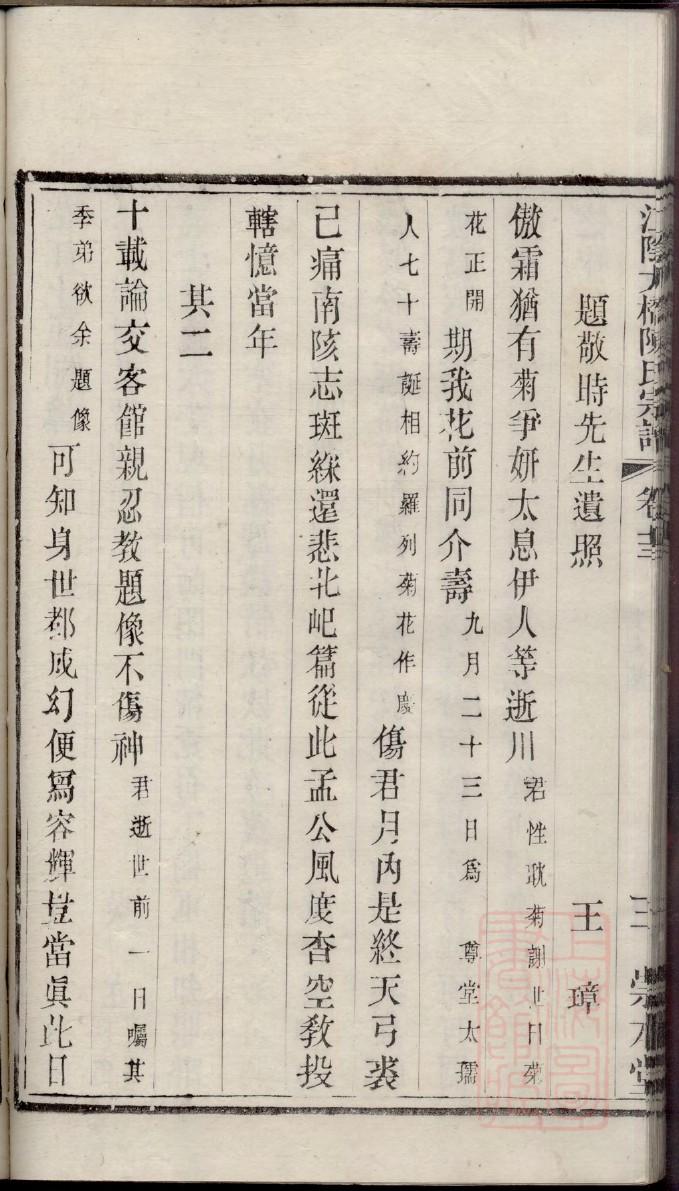 江陰九橋陳氏宗譜 卷 三 崇本堂
題敬時先生遺照 王璋
傲霜猶有菊爭妍太息伊人等逝川君性耽菊謝世日菊
花正開期我花前同介壽九月二十三日爲 尊堂太孺
人七十壽誕相約羅列菊花作慶傷君月內是終天弓裘
已痛南陔志斑綵還悲北屺篇從此孟公風度杳空敎投
轄憶當年
其二
十載論交客館親忍教題像不傷神君逝世前一日囑其
季弟欲余題像可知身世都成幻便爲容輝豈當眞此日